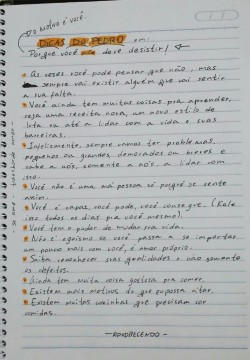 DO NOIVO É VOCÊ.
DICAS DO PEDRO em:
Porque você não deve desistir!
• Às vezes você pode pensar que não, mas
sempre vai existir alguém que vai sentir
a sua falta.
• Você ainda tem muitas coisas pra aprender,
seja uma receita nova, um novo estilo de
luta ou até a lidar com a vida e suas
barreiras.
• Infelizmente, sempre vamos ter problemas,
pequenos ou grandes, demorados ou breves e
cabe a nós, somente a nós, a lidar com
isso.
• Você não é uma má pessoa só porque se sente
assim.
• Você é capaz, você pode, você consegue. (Fale
isso todos os dias pra você mesmo).
• Você tem o poder de mudar sua vida.
• Não é egoísmo se você passa a se importar
um pouco mais com você, é amor próprio.
• Saiba reconhecer suas qualidades e não somente
os defeitos.
• Ainda tem muita coisa gostosa pra comer.
• Existem mais motivos do que possamos achar.
• Existem muitas coxinhas que precisam ser
comidas.